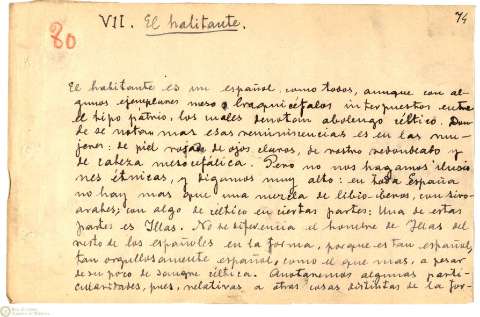 80
VII. El habitante.
74
El habitante es un español, como todos, aunque con al-
gunos ejemplares meso o braquicéfalos interpuestos entre
el tipo patrio, los cuales denotan abolengo céltico. Don-
de se notan mas esas reminiscencias es en las mu-
jeres: de piel rojada de ojos claros, de rostro redondeado y
de cabeza mesocefálica. Pero no nos hagamos ilusio
nes étnicas, y digamos muy alto: en toda España
no hay mas que una mezcla de libio-iberos, con siro-
arabes; con algo de céltico en ciertas partes: Una de estas
partes es Illas. No se diferencia el hombre de Illas del
resto de los españoles en la forma, porque es tan español,
tan orgullosamente español, como el que mas, a pesar
de su poco de sangre céltica. Anotaremos algunas parti-
cularidades, pues, relativas a otras cosas distintas de la for-